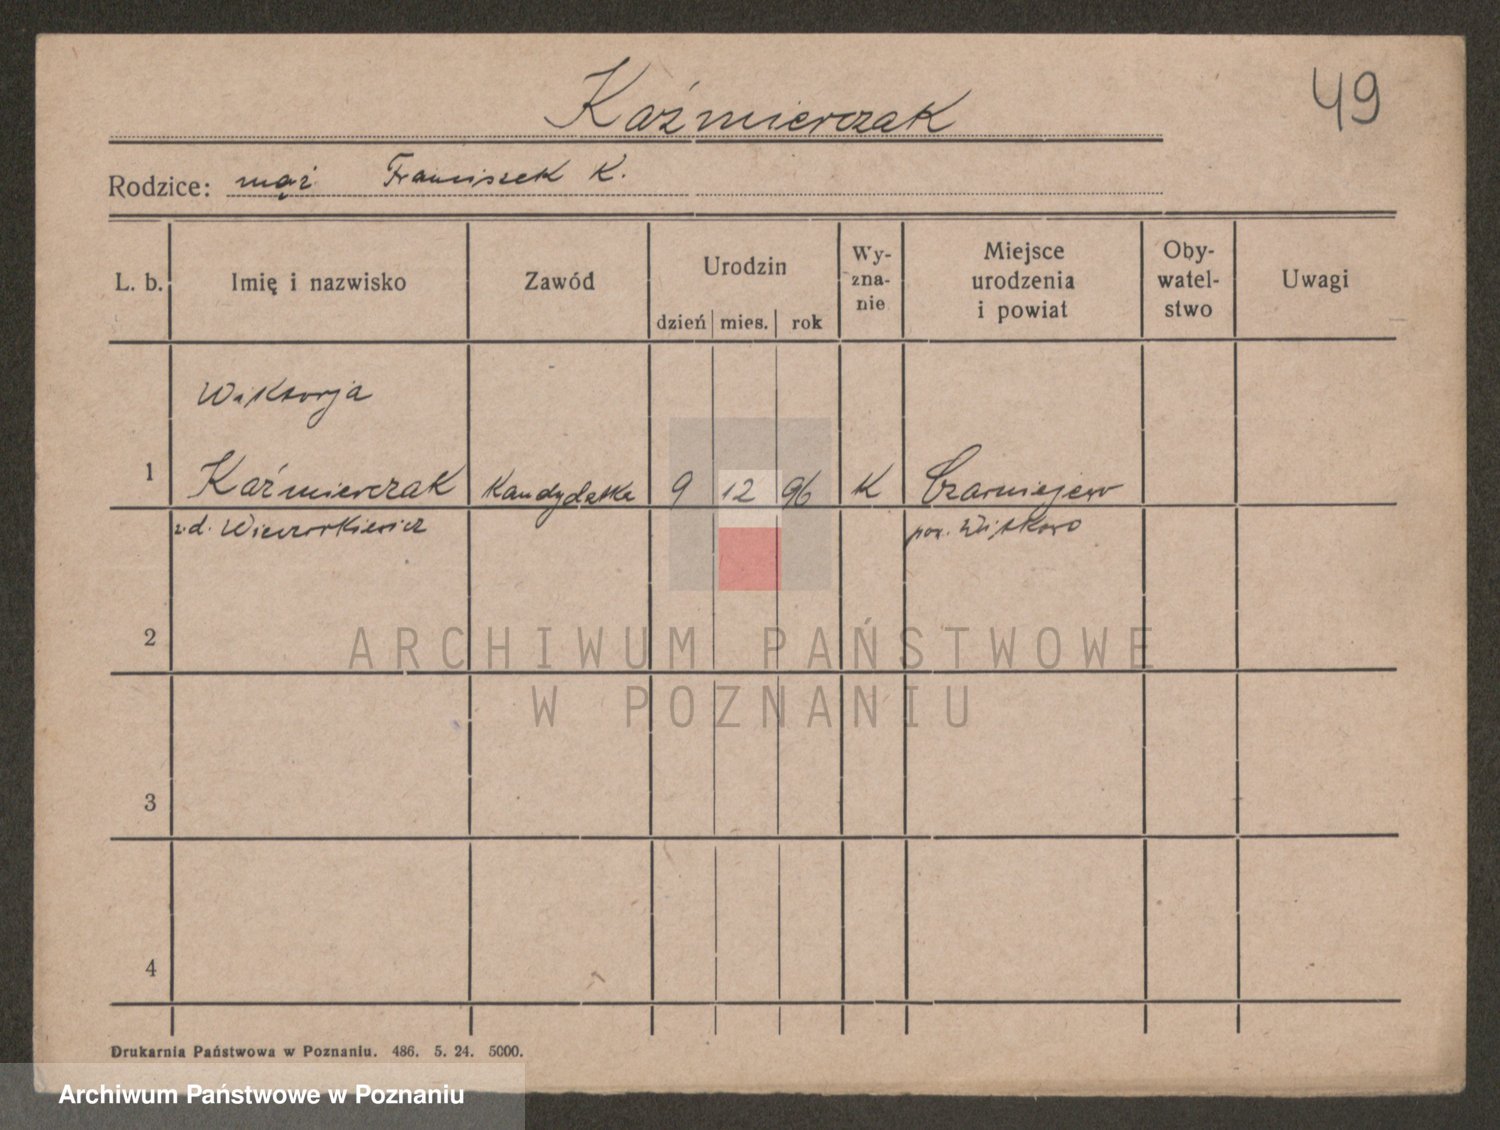 Kaźmierczak
49
Rodzice: mąż Franciszek K.
L. b.
Imię i nazwisko
Zawód
Urodzin
dzień mies. rok
Wy-
zna-
nie
Miejsce
urodzenia
i powiat
Oby-
watel-
stwo
Uwagi
Wiktorja
1 Kaźmierczak Kandydatka 9 12 96 K Czarniejewo
z d. Wieczorkiewicz pow. Witkowo
2
3
4
ARCHIWUM PAŃSTWOWE
W POZNANIU
Drukarnia Państwowa w Poznaniu. 486. 5. 24. 5000.
Archiwum Państwowe w Poznaniu